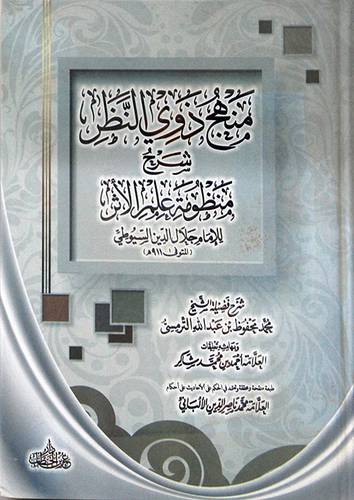 منهج ذوي النظر
شرح
منظومة علم الأثر
للإمام جلال الدين السيوطي
(المتوفى ٩١١هـ)
شرح فضيلة الشيخ
محمد محفوظ بن عبد الله الترمسي
العلامة أحمد بن محمد شاكر
طبعة منقحة ومحققة وتعتمد في الحكم على الأحاديث على أحكام
العلامة محمد ناصر الدين الألباني